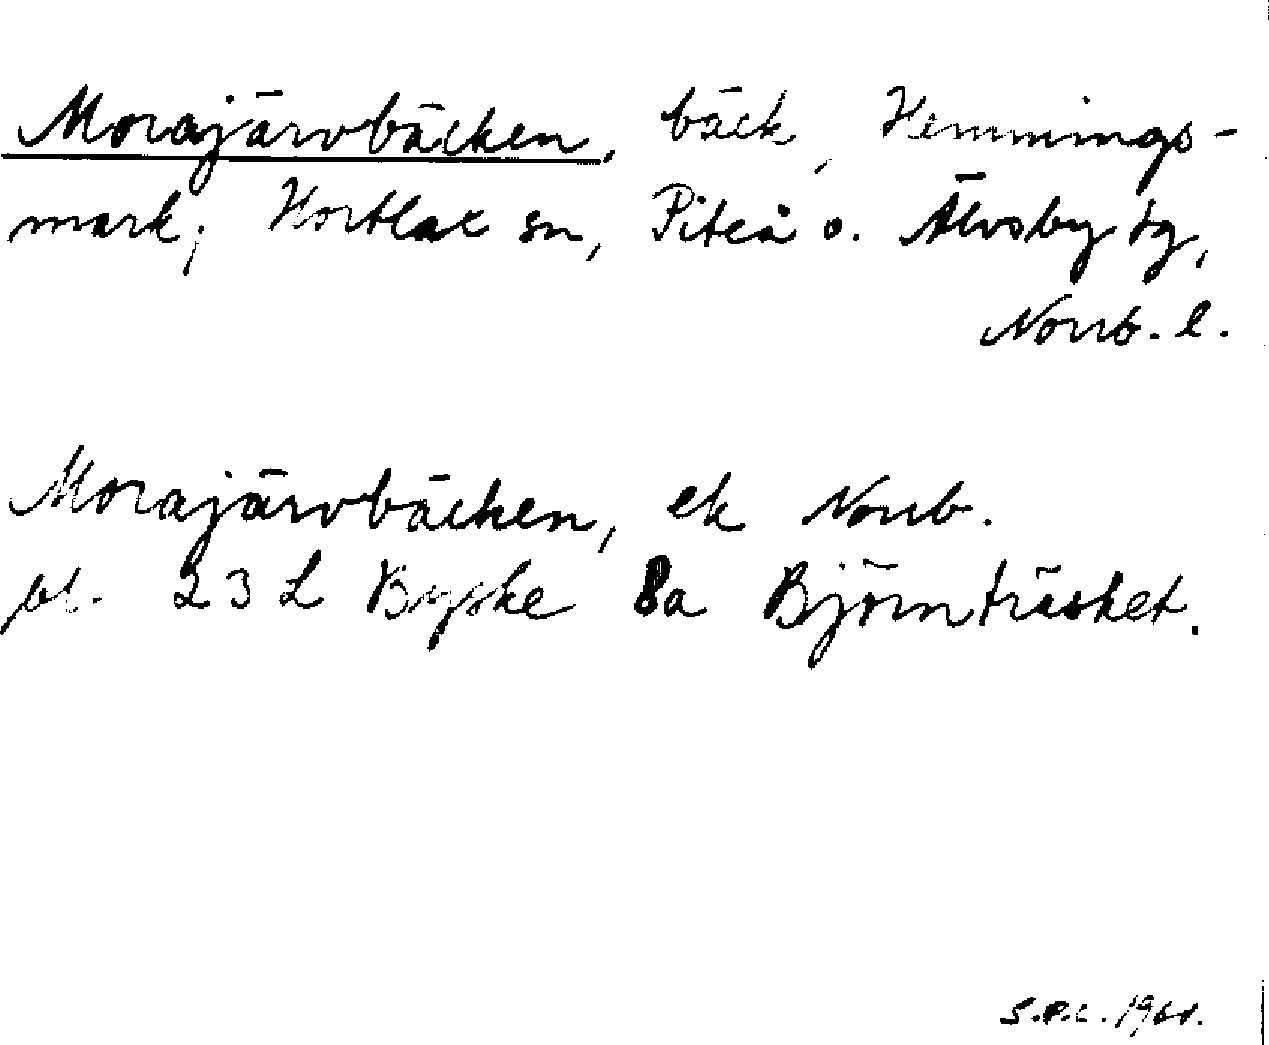 Morajärvbäcken, bäck, Hemmings-
mark, Hortlax sn, Piteå o. Älvsby tg,
Norrb. l.
Morajärvbäcken, ek Norrb.
bl. 23 L Byske 8a Björnträsket.